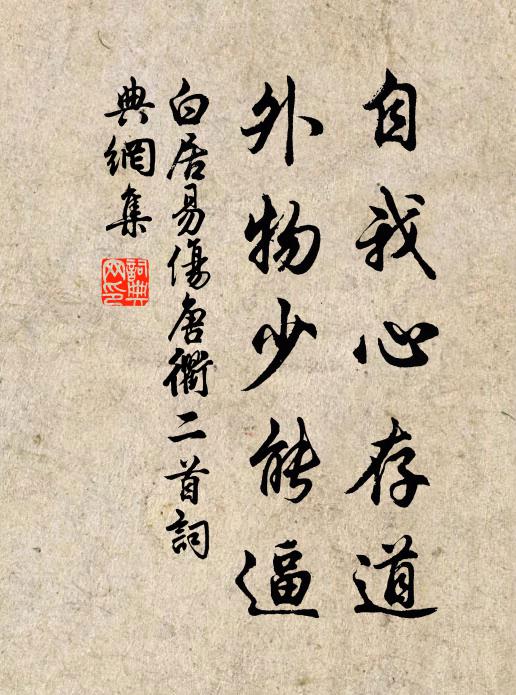 自我心存道
外物少能逼
白居易傷唐衢二首詞
典網集
詞典
网印